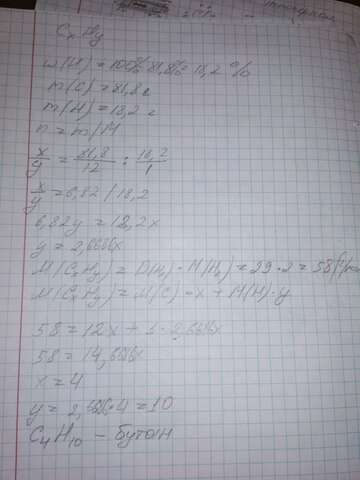 CxHy
w(H) = 100% - 81,8% = 18,2 %
m(C) = 81,8 г
m(H) = 18,2 г
n = m/M
x/y = 81,8/12 : 18,2/1
x/y = 6,82 / 18,2
6,82y = 18,2x
y = 2,6686x
M(CxHy) = D(H2) · M(H2) = 29 · 2 = 58
M(CxHy) = M(C) · x + M(H) · y
58 = 12x + 1 · 2,6686x
58 = 14,6686x
x = 4
4 = 10
C4H10 - бутан